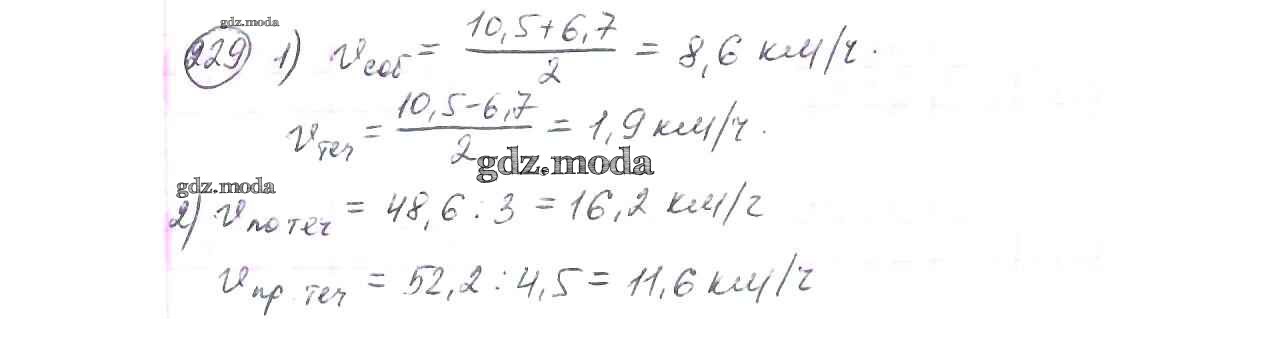 gdz.moda
229 1) vсоб = (10,5+6,7)/2 = 8,6 км/ч.
vтеч = (10,5-6,7)/2 = 1,9 км/ч.
gdz.moda
gdz.moda
2) vпо теч = 48,6 : 3 = 16,2 км/ч
vпр теч = 52,2 : 4,5 = 11,6 км/ч